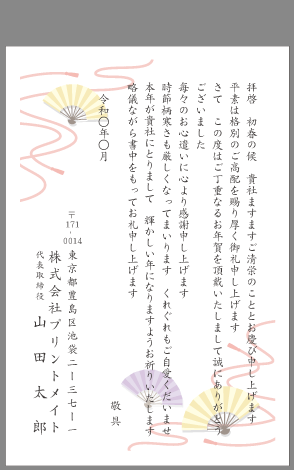 拝啓　初春の候　貴社ますますご清栄のこととお慶び申し上げます
平素は格別のご高配を賜り厚く御礼申し上げます
さて　この度はご丁重なるお年賀を頂戴いたしまして誠にありがとう
ございました
毎々のお心遣いに心より感謝申し上げます
時節柄寒さも厳しくなってまいります　くれぐれもご自愛くださいませ
本年が貴社にとりまして　輝かしい年になりますようお祈りいたします
略儀ながら書中をもってお礼申し上げます
敬具
令和〇年〇月
〒171-0014
東京都豊島区池袋二ー三七ー一
株式会社プリントメイト
代表取締役　山田太郎